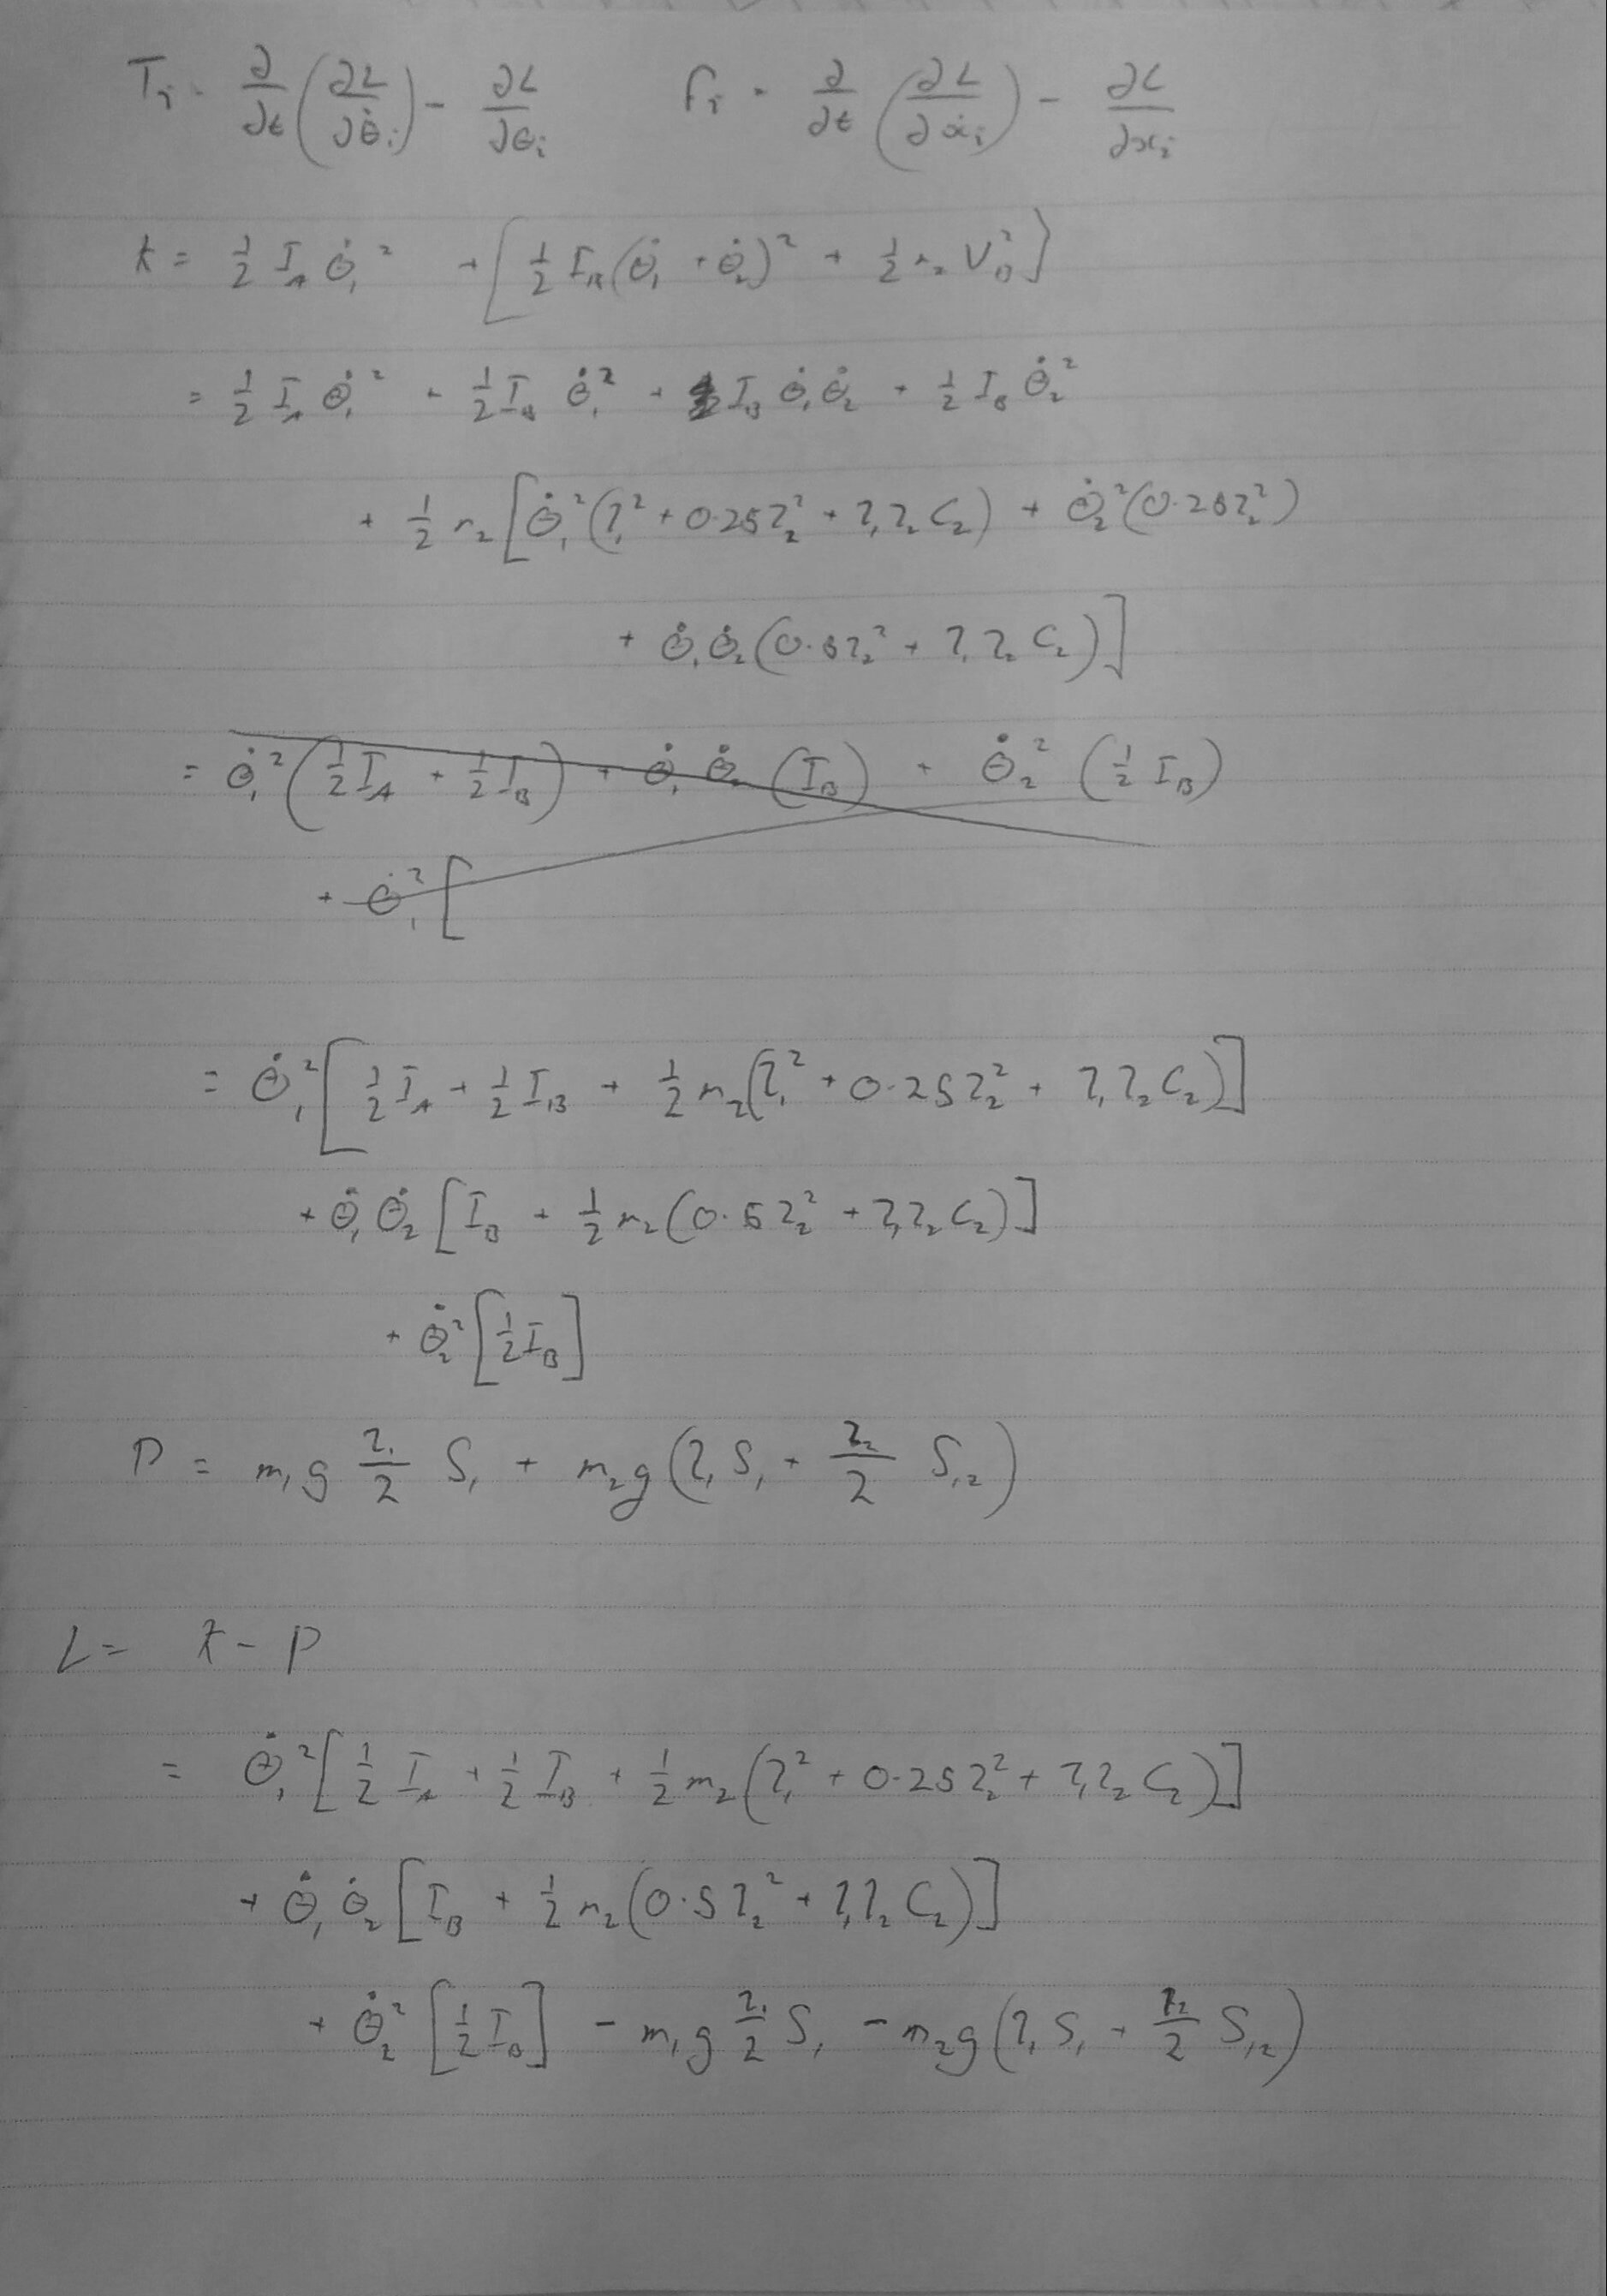 Tᵢ = ∂/∂t (∂L/∂θ̇ᵢ) - ∂L/∂θᵢ Fᵢ = ∂/∂t (∂L/∂ẋᵢ) - ∂L/∂xᵢ
K = 1/2 I_A θ̇₁² + [1/2 I_B (θ̇₁ + θ̇₂)² + 1/2 m₂ V_D²]
= 1/2 I_A θ̇₁² + 1/2 I_B θ̇₁² + I_B θ̇₁ θ̇₂ + 1/2 I_B θ̇₂²
+ 1/2 m₂ [θ̇₁² (l₁² + 0.25 l₂² + l₁ l₂ C₂) + θ̇₂² (0.25 l₂²)
+ θ̇₁ θ̇₂ (0.5 l₂² + l₁ l₂ C₂)]
= θ̇₁² (1/2 I_A + 1/2 I_B) + θ̇₁ θ̇₂ (I_B) + θ̇₂² (1/2 I_B)
+ θ̇₁² [
= θ̇₁² [1/2 I_A + 1/2 I_B + 1/2 m₂ (l₁² + 0.25 l₂² + l₁ l₂ C₂)]
+ θ̇₁ θ̇₂ [I_B + 1/2 m₂ (0.5 l₂² + l₁ l₂ C₂)]
+ θ̇₂² [1/2 I_B]
P = m₁ g l₁/2 S₁ + m₂ g (l₁ S₁ + l₂/2 S₁₂)
L = K - P
= θ̇₁² [1/2 I_A + 1/2 I_B + 1/2 m₂ (l₁² + 0.25 l₂² + l₁ l₂ C₂)]
+ θ̇₁ θ̇₂ [I_B + 1/2 m₂ (0.5 l₂² + l₁ l₂ C₂)]
+ θ̇₂² [1/2 I_B] - m₁ g l₁/2 S₁ - m₂ g (l₁ S₁ + l₂/2 S₁₂)